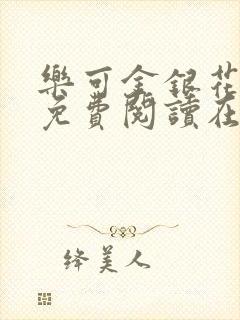 樂可金銀花
免費閱讀在
绛美人